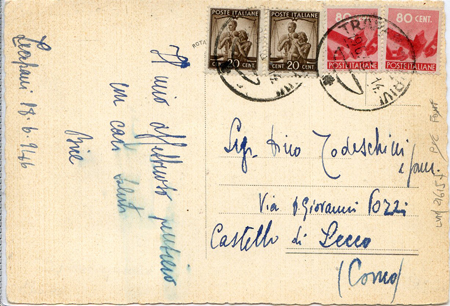 Trapani 18.6.946
Il mio affettuoso pensiero
con cari saluti
POSTE ITALIANE
20 CENT
POSTE ITALIANE
20 CENT
80 CENT.
POSTE ITALIANE
80 CENT.
POSTE ITALIANE
TRAP
Sig. Dino Todeschini
e fam.
Via P. Giovanni Pozzi
Castello di Lecco
(Como)